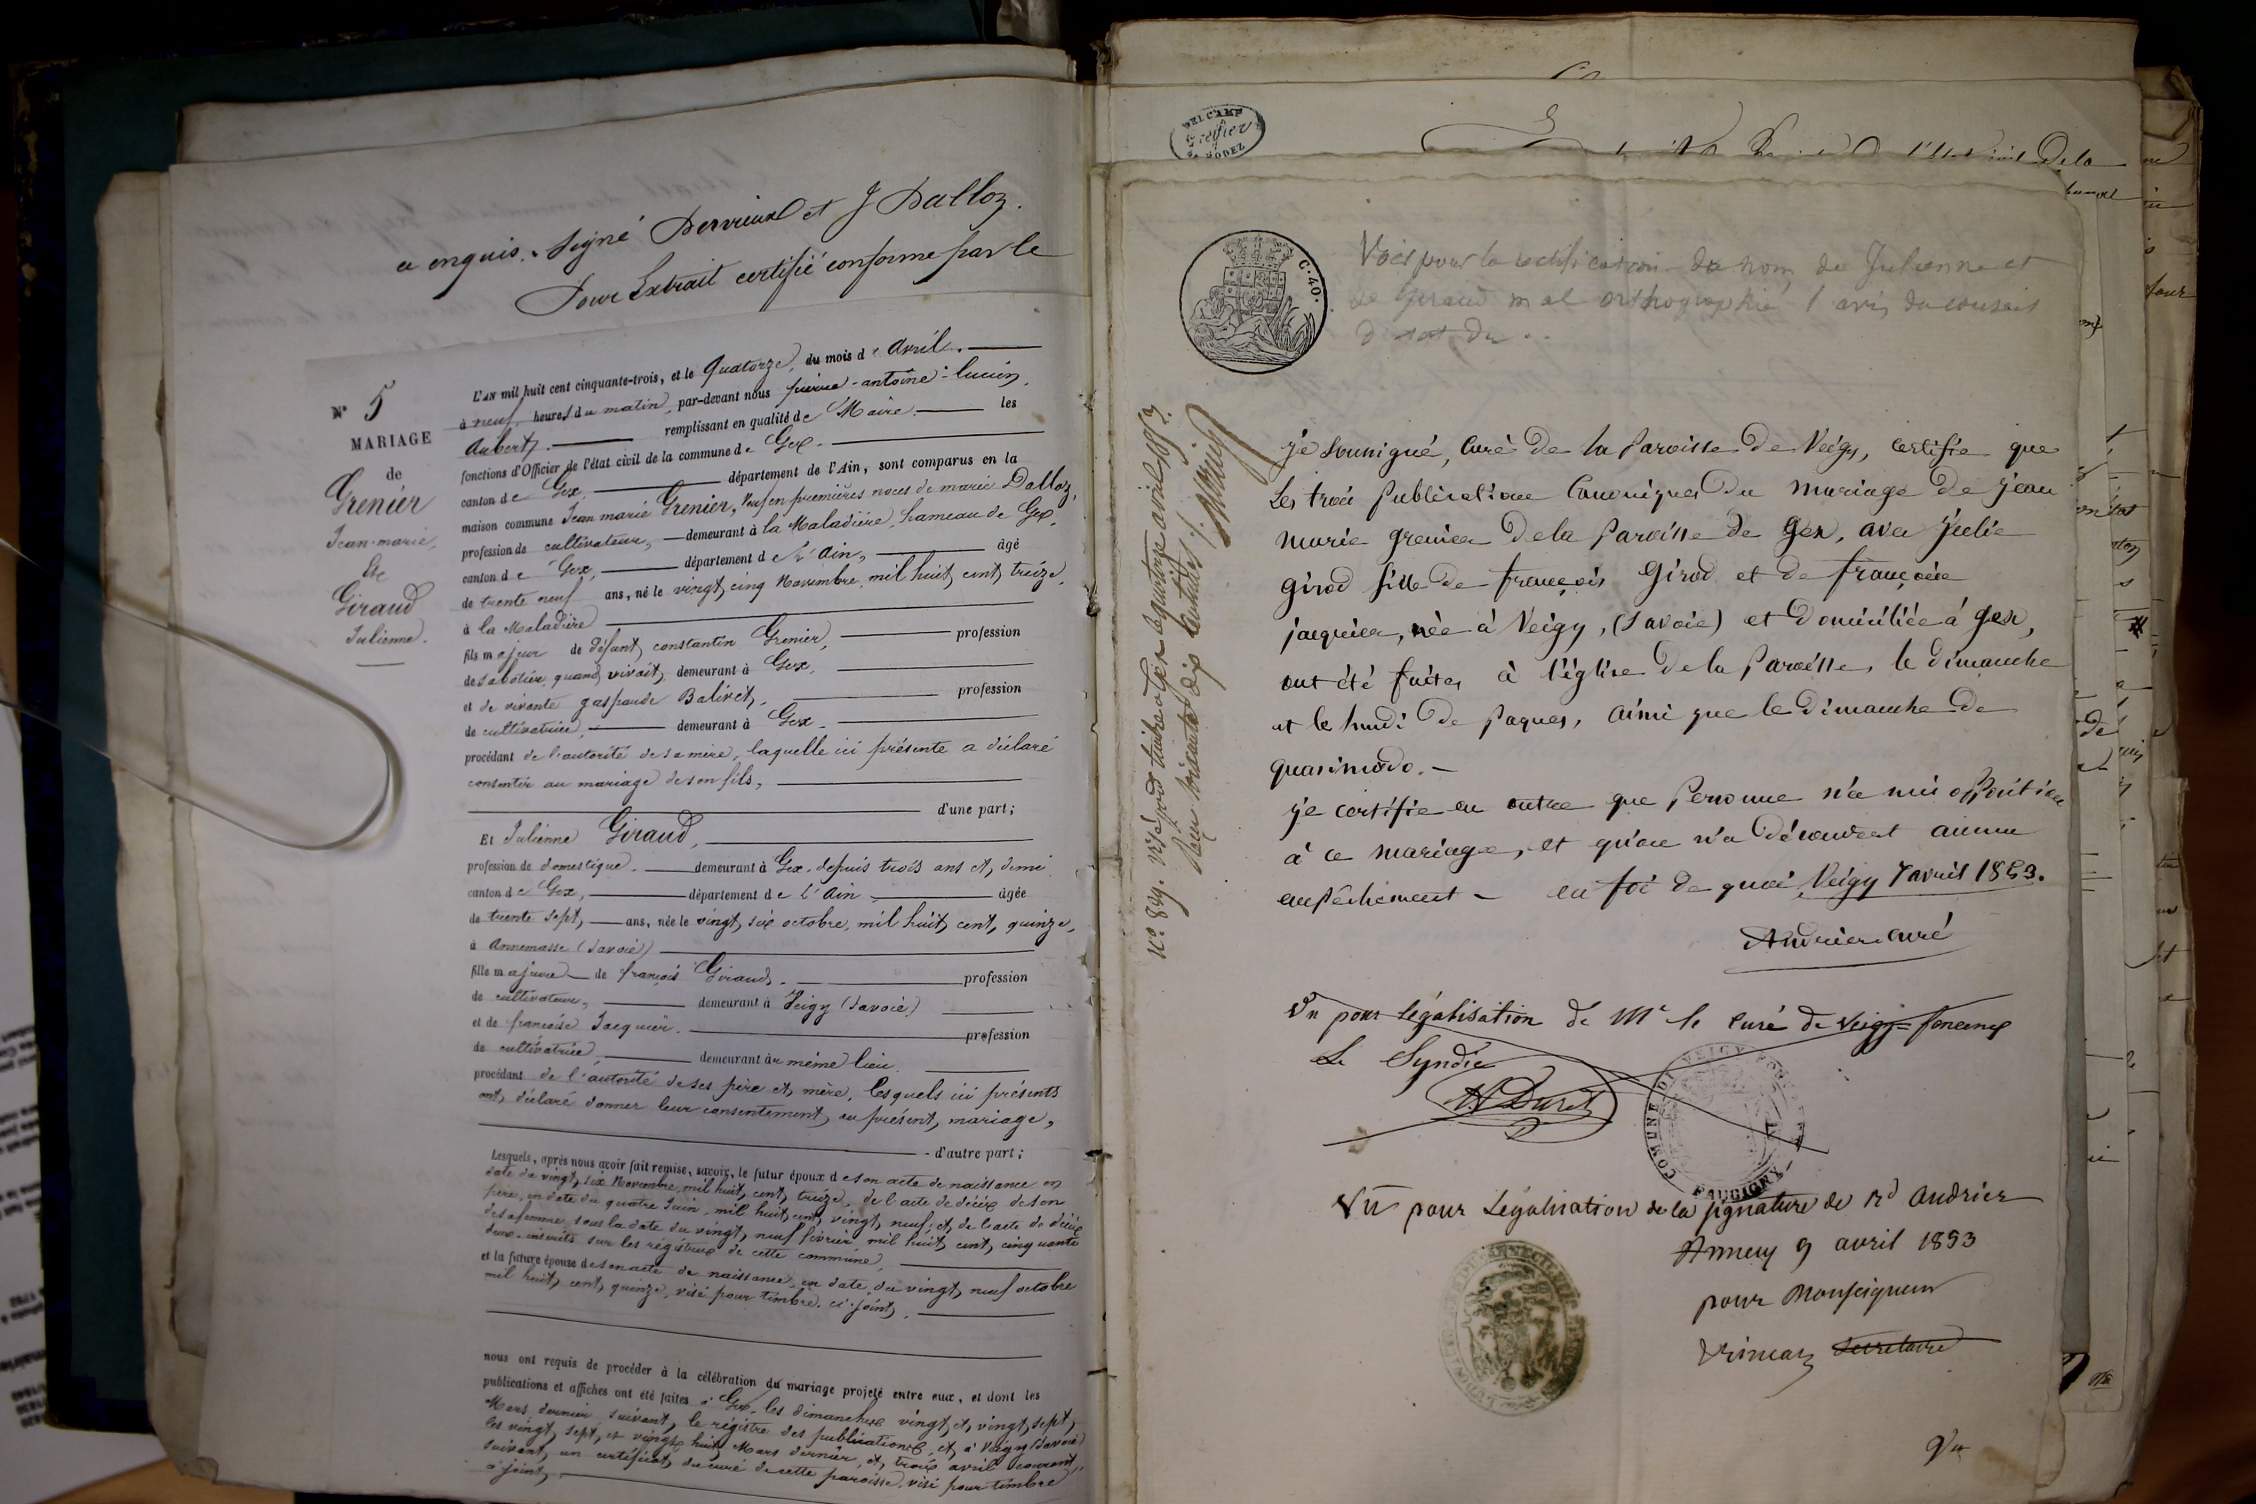 a enquis. Signé Dervieux et J Dalloz.
Pour Extrait certifié conforme par le
N° 5
MARIAGE
de
Grenier
Jean-marie,
Et
Giraud
Julienne.
L'AN mil huit cent cinquante-trois, et le Quatorze, du mois de Avril.
à neuf heures du matin, par-devant nous pierre-antoine-lucien,
Aubert, remplissant en qualité de Maire les
fonctions d'Officier de l'état civil de la commune de Gex.
canton de Gex, département de l'Ain, sont comparus en la
maison commune Jean marie Grenier, veuf en premières noces de marie Dalloz,
profession de cultivateur, demeurant à la Maladière, hameau de Gex,
canton de Gex, département de L'Ain, âgé
de trente neuf ans, né le vingt cinq Novembre, mil huit cent treize,
à la Maladière
fils majeur de défunt constantin Grenier, profession
de sabotier, quand vivait, demeurant à Gex,
et de vivante gasparde Balivet, profession
de cultivatrice, demeurant à Gex.
procédant de l'autorité de sa mère, laquelle ici présente a déclaré
consentir au mariage de son fils,
d'une part;
Et Julienne Giraud,
profession de domestique. demeurant à Gex, depuis trois ans et demi
canton de Gex, département de L'Ain, âgée
de trente sept, ans, née le vingt six octobre, mil huit cent quinze,
à Annemasse (Savoie)
fille majeure de françois Giraud, profession
de cultivateur, demeurant à Veigy (Savoie)
et de françoise Jacquier. profession
de cultivatrice, demeurant au même lieu.
procédant de l'autorité de ses père et mère, lesquels ici présents
ont déclaré donner leur consentement au présent mariage,
d'autre part;
Lesquels, après nous avoir fait remise, savoir, le futur époux de son acte de naissance en
date du vingt six Novembre, mil huit cent treize, de l'acte de décès de son
père, en date du quatre Juin, mil huit cent vingt neuf, et de l'acte de décès
de sa femme, sous la date du vingt neuf février mil huit cent cinquante
deux, inscrits sur les régistres de cette commune,
et la future épouse de son acte de naissance, en date du vingt neuf octobre
mil huit cent quinze, visé pour timbre, ci-joint,
nous ont requis de procéder à la célébration du mariage projeté entre eux, et dont les
publications et affiches ont été faites à Gex, les dimanches vingt et vingt sept,
Mars dernier, suivant le régistre des publications, et à Veigy (Savoie)
les vingt sept, et vingt huit Mars dernier, et trois avril courant,
suivant un certificat du curé de cette paroisse, visé pour timbre
ci joint,
DELCAMP
Greffier
RODEZ
C. 40.
Voir pour la rectification du nom de Julienne et
de Giraud mal orthographié l'avis du conseil
d'état du ..
N° 899. Visé pour timbre à Gex le quatorze avril 1853.
Reçu soixante dix centimes.
je soussigné, curé de la Paroisse de Veigy, certifie que
Les trois Publications Canoniques Du mariage de jean
marie grenier De la Paroisse de Gex, avec julie
girod fille De françois Girod et de françoise
jacquier, née à Veigy, (Savoie) et domiciliée à Gex,
ont été faites à l'église De la Paroisse, le dimanche
et le lundi De Paques, ainsi que le dimanche de
quasimodo. -
je certifie en outre que Personne n'a mis opposition
à ce mariage, et qu'on n'a Découvert aucun
empêchement - en foi de quoi Veigy 7 avril 1853.
Andrier curé
Vu pour légalisation de Mr le curé de Veigy=foncenex
Le Syndic
Duret
COMUNE DI VEIGY FONCENEX
FAUCIGNY
Vu pour Légalisation de la signature de Rd Andrier
Annecy 9 avril 1853
pour Monseigneur
Secretaire
Vu